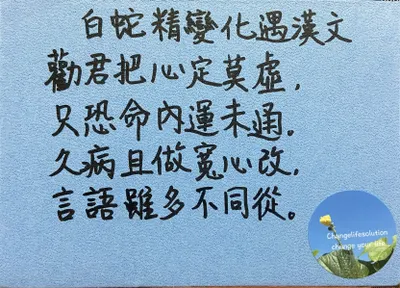 白蛇精變化遇漢文
勸君把心定莫虛,
只恐命內運未通。
久病且做寬心改,
言語雖多不同從。
Changelifesolution
change your life